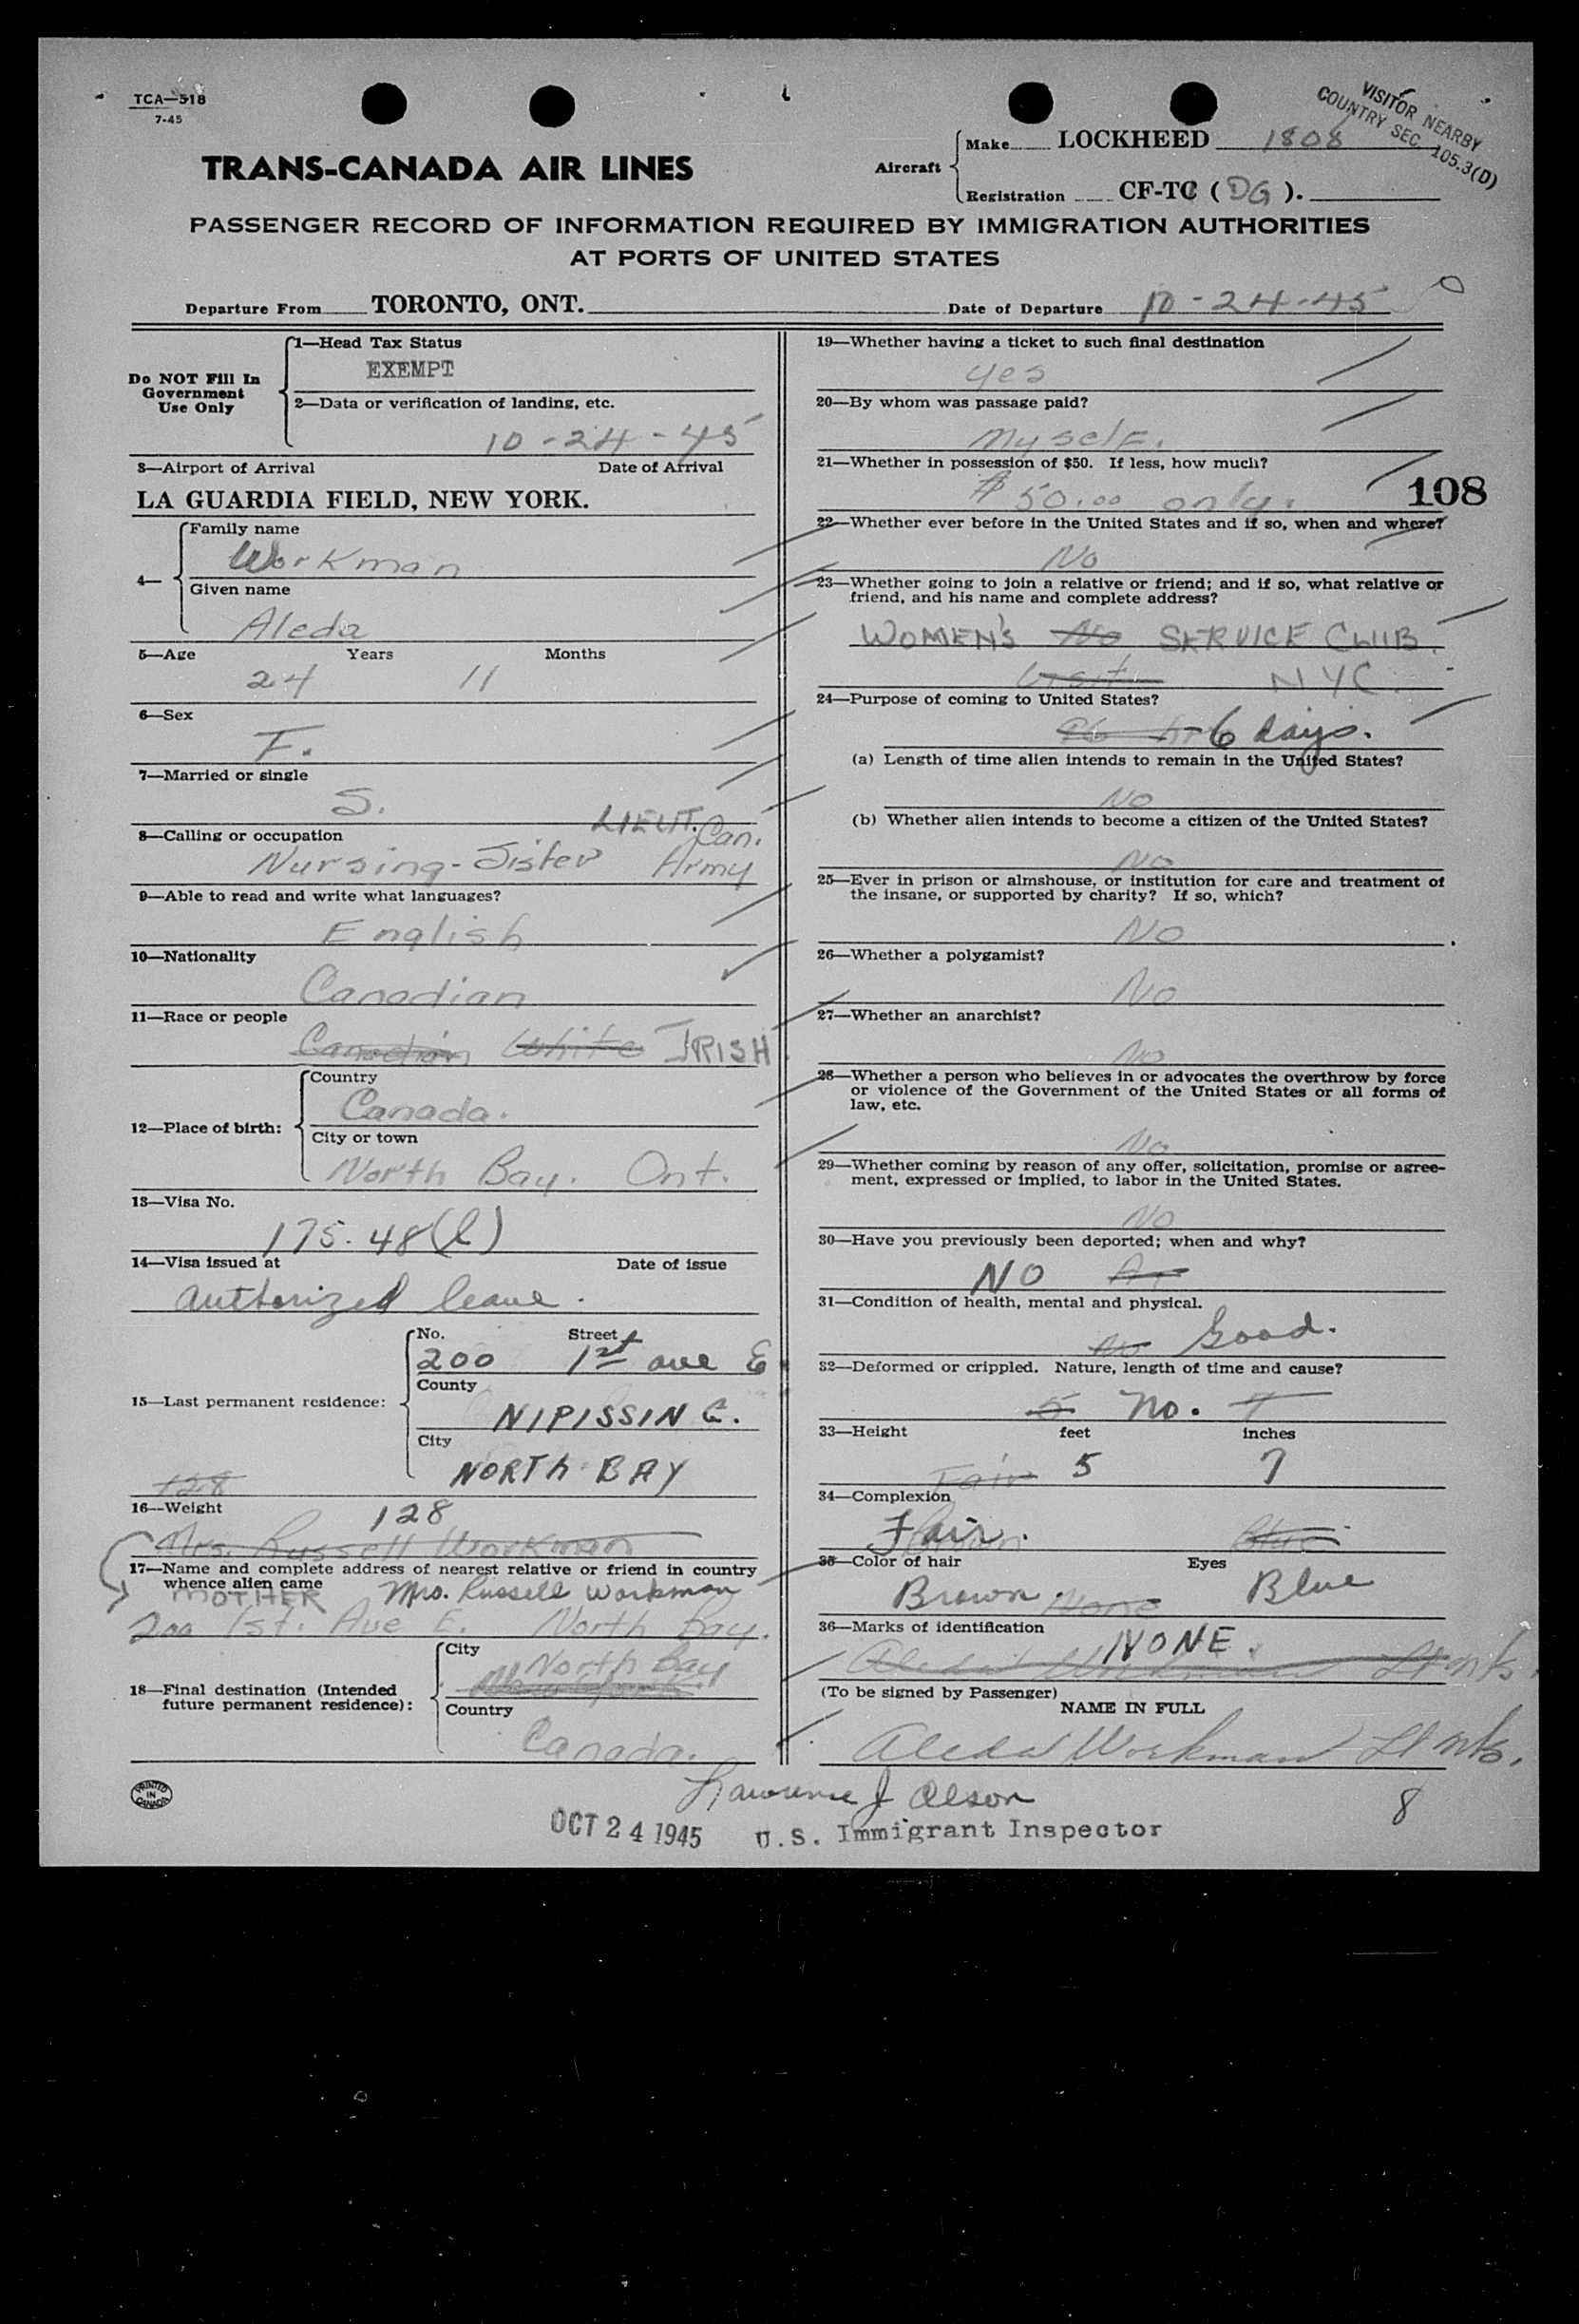 TCA—518
7-45
VISITOR NEARBY
COUNTRY SEC. 105.3(D)
TRANS-CANADA AIR LINES
Aircraft
Make LOCKHEED 1808
Registration CF-TC (DG).
PASSENGER RECORD OF INFORMATION REQUIRED BY IMMIGRATION AUTHORITIES
AT PORTS OF UNITED STATES
Departure From TORONTO, ONT. Date of Departure 10-24-45
Do NOT Fill In
Government
Use Only
1—Head Tax Status
EXEMPT
2—Data or verification of landing, etc.
10-24-45
3—Airport of Arrival Date of Arrival
LA GUARDIA FIELD, NEW YORK.
4—
Family name
Workman
Given name
Aleda
5—Age Years Months
24 11
6—Sex
F.
7—Married or single
S.
LIEUT. Can.
8—Calling or occupation
Nursing-Sister Army
9—Able to read and write what languages?
English
10—Nationality
Canadian
11—Race or people
Canadian White IRISH
12—Place of birth:
Country
Canada.
City or town
North Bay. Ont.
13—Visa No.
175.48(b)
14—Visa issued at Date of issue
authorized leave.
15—Last permanent residence:
No. Street
200 1st ave E
County
NIPISSING.
City
NORTH BAY
128
16—Weight
128
Mrs. Russell Workman
17—Name and complete address of nearest relative or friend in country
whence alien came
MOTHER Mrs. Russell Workman
200 1st. Ave E. North Bay.
18—Final destination (Intended
future permanent residence):
City
North Bay
New York
Country
Canada.
19—Whether having a ticket to such final destination
yes
20—By whom was passage paid?
Myself.
21—Whether in possession of $50. If less, how much?
$50.00 only.
108
22—Whether ever before in the United States and if so, when and where?
No
23—Whether going to join a relative or friend; and if so, what relative or
friend, and his name and complete address?
WOMEN'S No SERVICE CLUB.
Visit NYC.
24—Purpose of coming to United States?
96 hr 6 days.
(a) Length of time alien intends to remain in the United States?
No
(b) Whether alien intends to become a citizen of the United States?
No
25—Ever in prison or almshouse, or institution for care and treatment of
the insane, or supported by charity? If so, which?
No
26—Whether a polygamist?
No
27—Whether an anarchist?
No
28—Whether a person who believes in or advocates the overthrow by force
or violence of the Government of the United States or all forms of
law, etc.
No
29—Whether coming by reason of any offer, solicitation, promise or agree-
ment, expressed or implied, to labor in the United States.
No
30—Have you previously been deported; when and why?
NO
31—Condition of health, mental and physical.
No Good.
32—Deformed or crippled. Nature, length of time and cause?
5 No. 7
33—Height feet inches
Fair 5 7
34—Complexion
Fair. Blue
35—Color of hair Eyes
Brown. None Blue
36—Marks of identification
NONE.
Aleda Workman Lt n/s.
(To be signed by Passenger)
NAME IN FULL
Aleda Workman Lt n/s.
PRINTED
IN
CANADA
Lawrence J Olson
8
OCT 24 1945 U.S. Immigrant Inspector